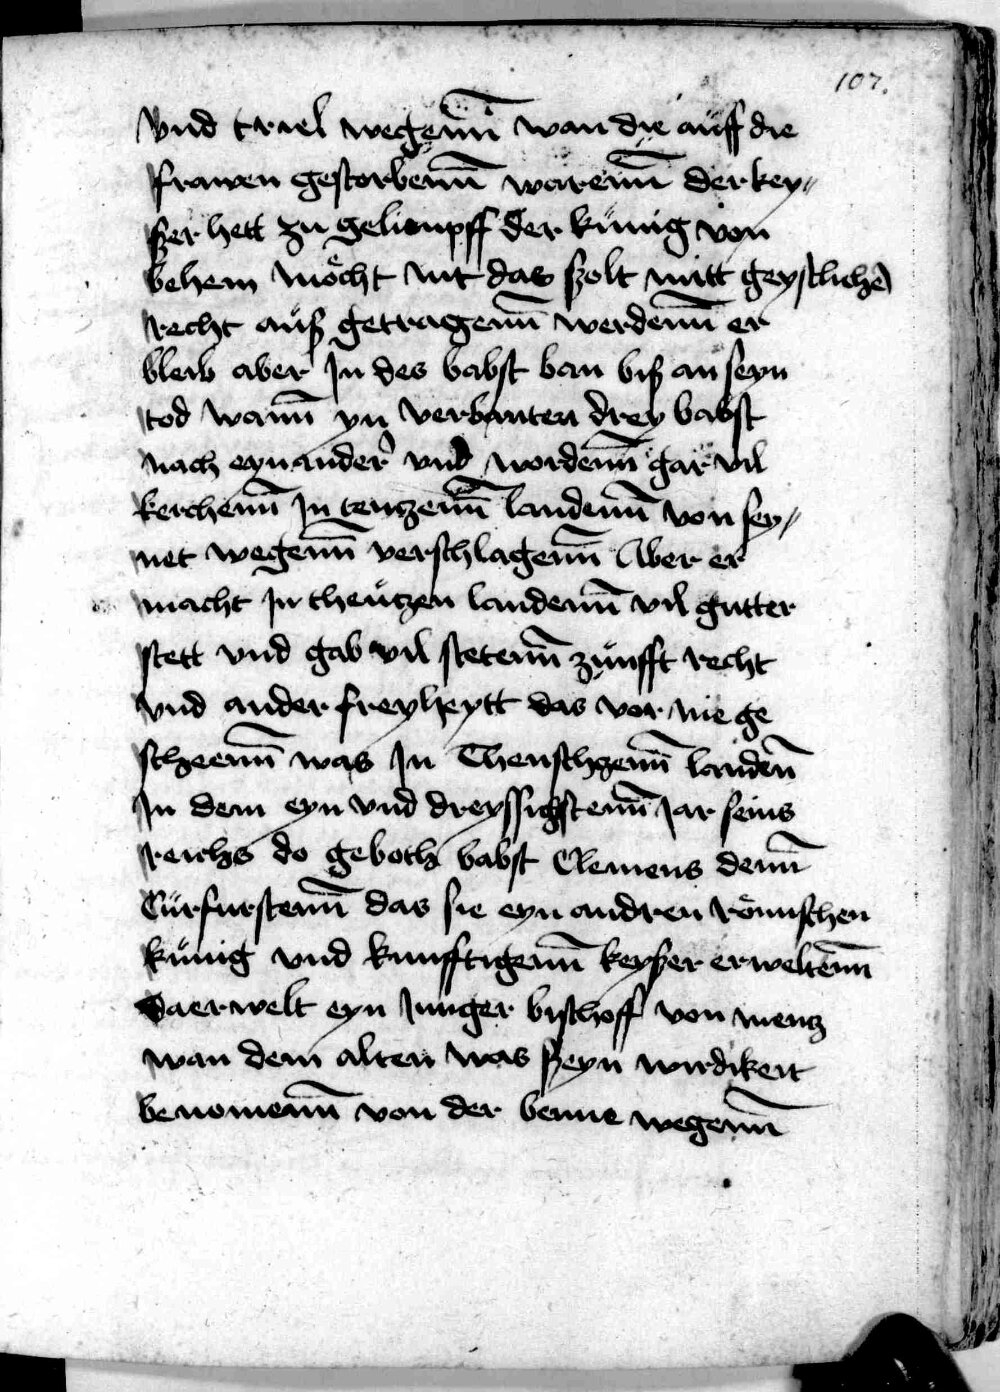 107.
vnd triel wegenn̄ wan die aüff die
frawen gestorbenn̄ warenn̄ der key⸗
ßer hett zu gelimpff der künig von
behem möcht nit das ßolt mitt geystlichē
recht aüß getragenn̄ werdenn̄ er
bleib aber Jn des babst ban biß an seyn
tod wann̄ yn verbanten drey babst
nach eynander vnd wordenn̄ gar vil
kerchenn̄ Jn teutzenn̄ landenn̄ von sey⸗
net wegenn̄ verschlagenn̄ Aber er
macht Jn theützen landenn̄ vil gutter
stett vnd gab vil stetenn̄ zünfft recht
vnd ander freyheytt das vor nie ge
scheenn̄ was Jn Theuschgenn̄ landen̄
Jn dem eyn vnd dreyssigstenn̄ Jar seins
reichs do geboth babst Clemens denn̄
Cürfurstenn̄ das sie eyn andren römischen
künig vnd kunfftigenn̄ keyßer erweltenn̄
Da erwelt eyn Junger bischoff von mentz
wan dem alten was ßeyn wirdikeit
benomenn̄ von der benne wegenn̄